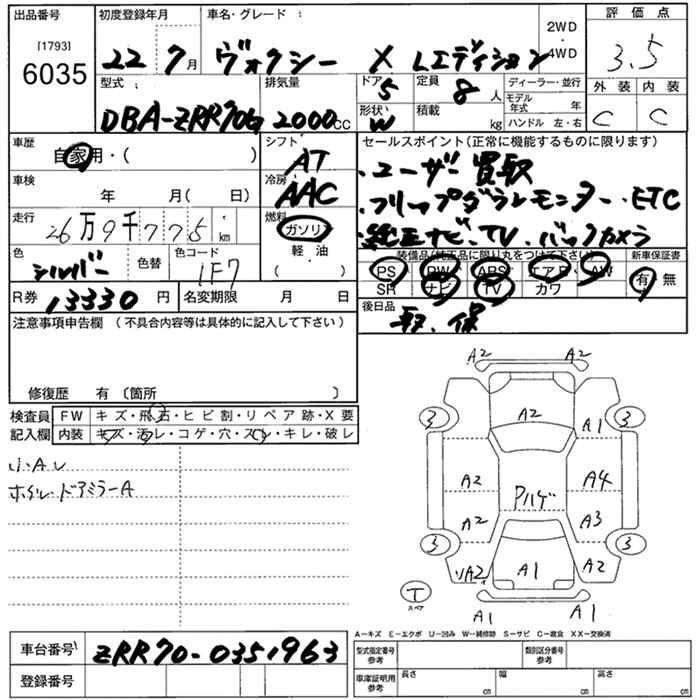 出品番号 初度登録年月 車名・グレード： 2WD 評価点
[1793] 6035 22年7月 ヴォクシー X Lエディション 4WD 3.5
型式： 排気量 ドア 5 定員 8人 ディーラー・並行 外装 内装
DBA-ZRR70G 2000cc 形状 W 積載 kg モデル年式 年 C C
ハンドル 左・右
車歴 自家用・( ) シフト AT セールスポイント(正常に機能するものに限ります)
車検 年 月( 日) 冷房 AAC ・ユーザー買取
・フリップダウンモニター・ETC
走行 26万9千775km 燃料 ガソリン ・純正ナビ・TV・バックカメラ
軽油
( )
色 シルバー 色替 色コード 1F7 装備品(純正品に限り丸をつけて下さい) 新車保証書
PS PW ABS エアB AW 有・無
SR ナビ TV カワ
R券 13330円 名変期限 月 日 後日品
取、保
注意事項申告欄 (不具合内容等は具体的に記入して下さい)
修復歴 有 〔箇所 〕
検査員 FW キズ・飛石・ヒビ割・リペア跡・X要
記入欄 内装 キズ・汚レ・コゲ・穴・スレ・キレ・破レ
小Aレ
ホイル・ドアミラーA
A2 A2
3 A2 A1 3
A2 A4
Pハゲ
A2 A3
3 3
リA2 A1 A2
T
スペア
A1 A1
A－キズ E－エクボ U－凹み W－補修跡 S－サビ C－腐食 XX－交換済
車台番号 ZRR70-0351963 型式指定番号 参考 類別区分番号 参考
登録番号 車庫証明用 参考 長さ cm 幅 cm 高さ cm